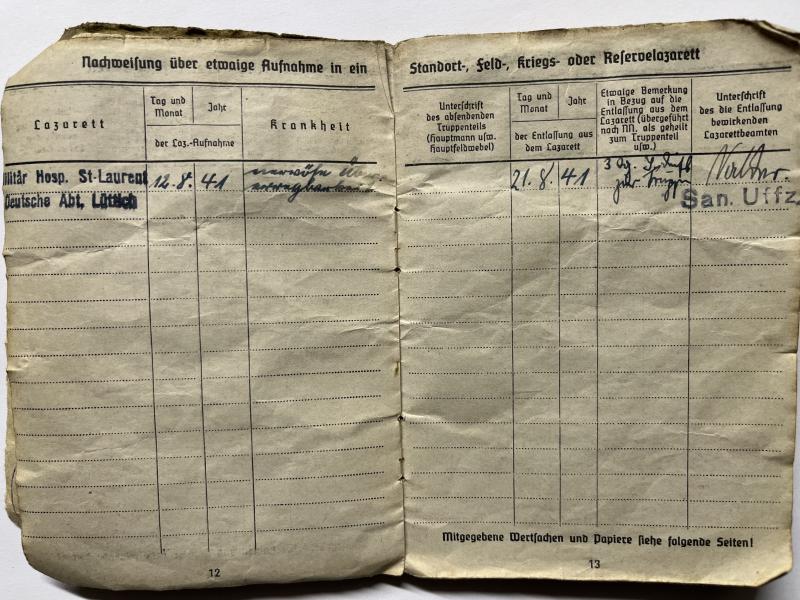 Nachweisung über etwaige Aufnahme in ein
Lazarett
Tag und Monat
Jahr
der Laz.-Aufnahme
Krankheit
Militär Hosp. St-Laurent
Deutsche Abt, Lüttich
12.8.
41
nervöse Über-
erregbarkeit
12
Standort-, Feld-, Kriegs- oder Reservelazarett
Unterschrift
des absendenden
Truppenteils
(Hauptmann usw.
Hauptfeldwebel)
Tag und Monat
Jahr
der Entlassung aus
dem Lazarett
Etwaige Bemerkung
in Bezug auf die
Entlassung aus dem
Lazarett (übergeführt
nach NN. als geheilt
zum Truppenteil
usw.)
Unterschrift
des die Entlassung
bewirkenden
Lazarettbeamten
21.8.
41
3
San. Uffz.
Mitgegebene Wertsachen und Papiere siehe folgende Seiten!
13